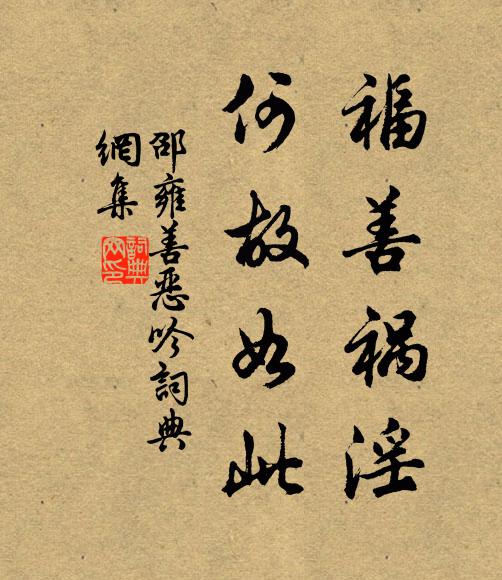 福善祸淫
何故如此
邵雍善恶吟詞典
網集
詞典
网印